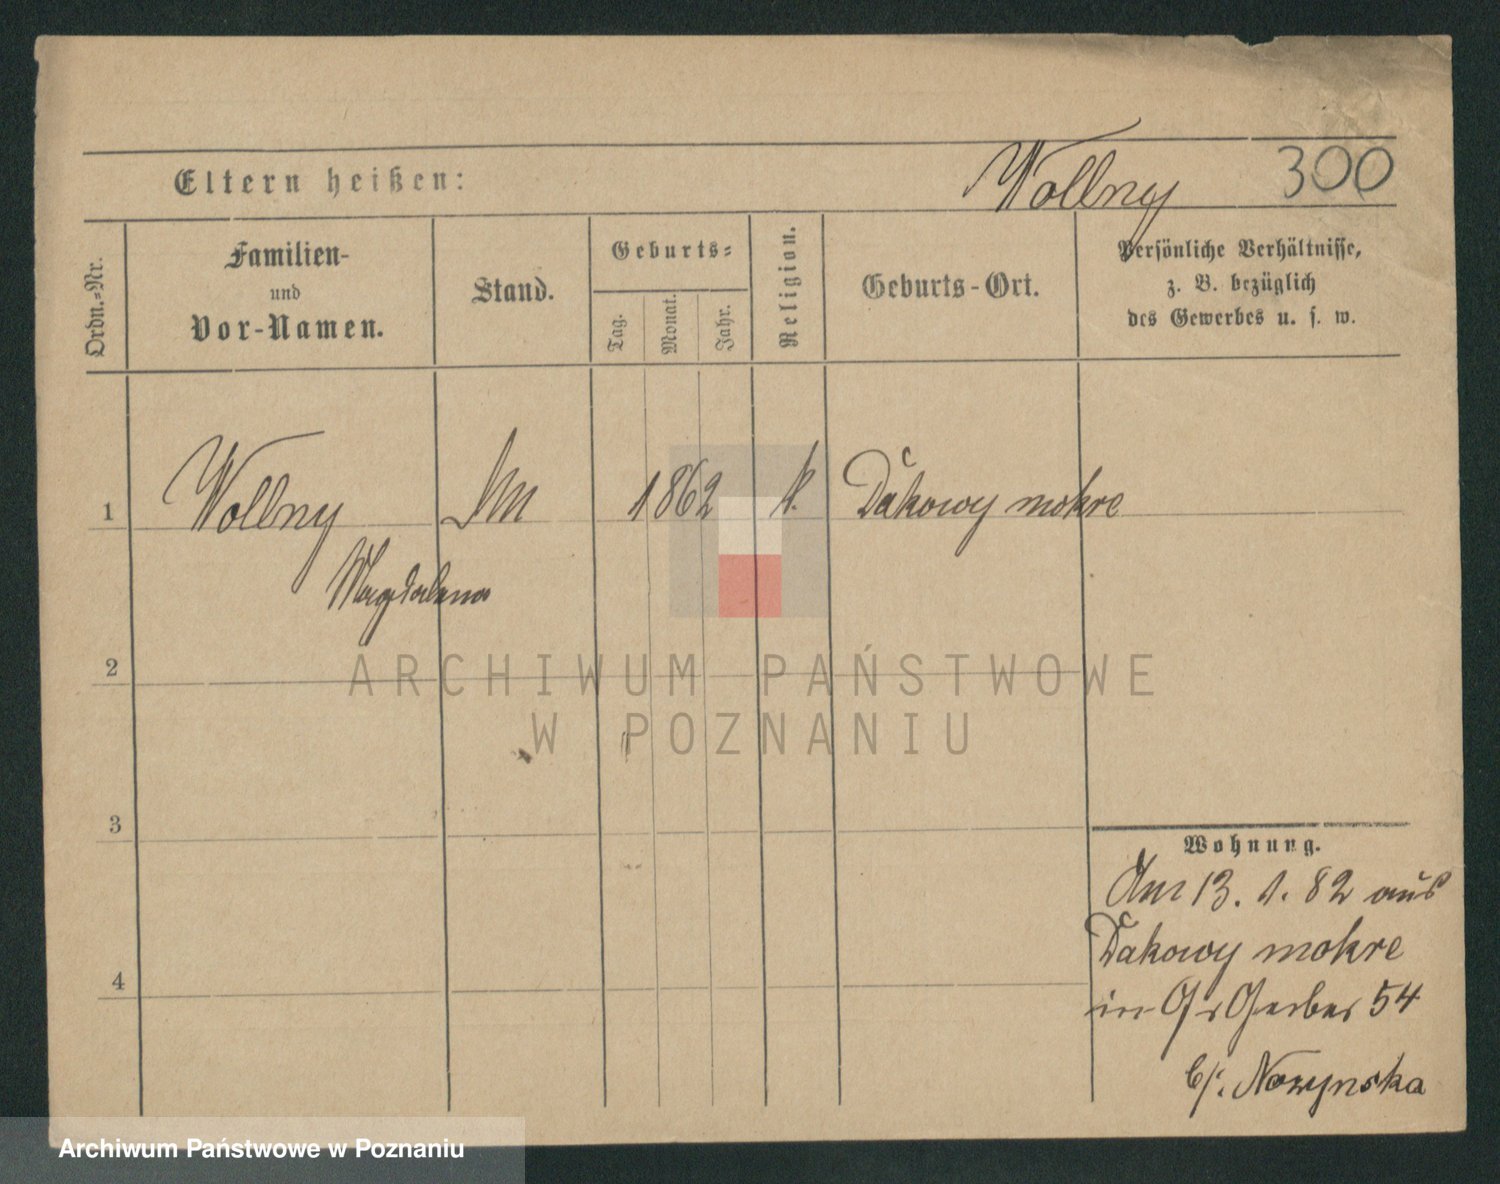 Eltern heißen:
Wollny 300
Ordn.=Nr.
Familien-
und
Vor-Namen.
Stand.
Geburts=
Tag.
Monat.
Jahr.
Religion.
Geburts-Ort.
Persönliche Verhältnisse,
z. B. bezüglich
des Gewerbes u. s. w.
1 Wollny 1862 k. Dakowy mokre
Magdalena
2
ARCHIWUM PAŃSTWOWE
W POZNANIU
3
Wohnung.
Am 13. 1. 82 aus
Dakowy mokre
4
in Gr Gerber 54
b/. Nozynska
Archiwum Państwowe w Poznaniu